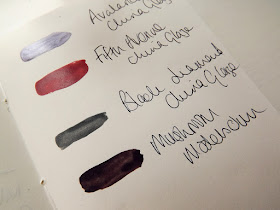 China Glaze
Fifth Avenue
China Glaze
Black Diamond
China Glaze
Mushroom
Models Own